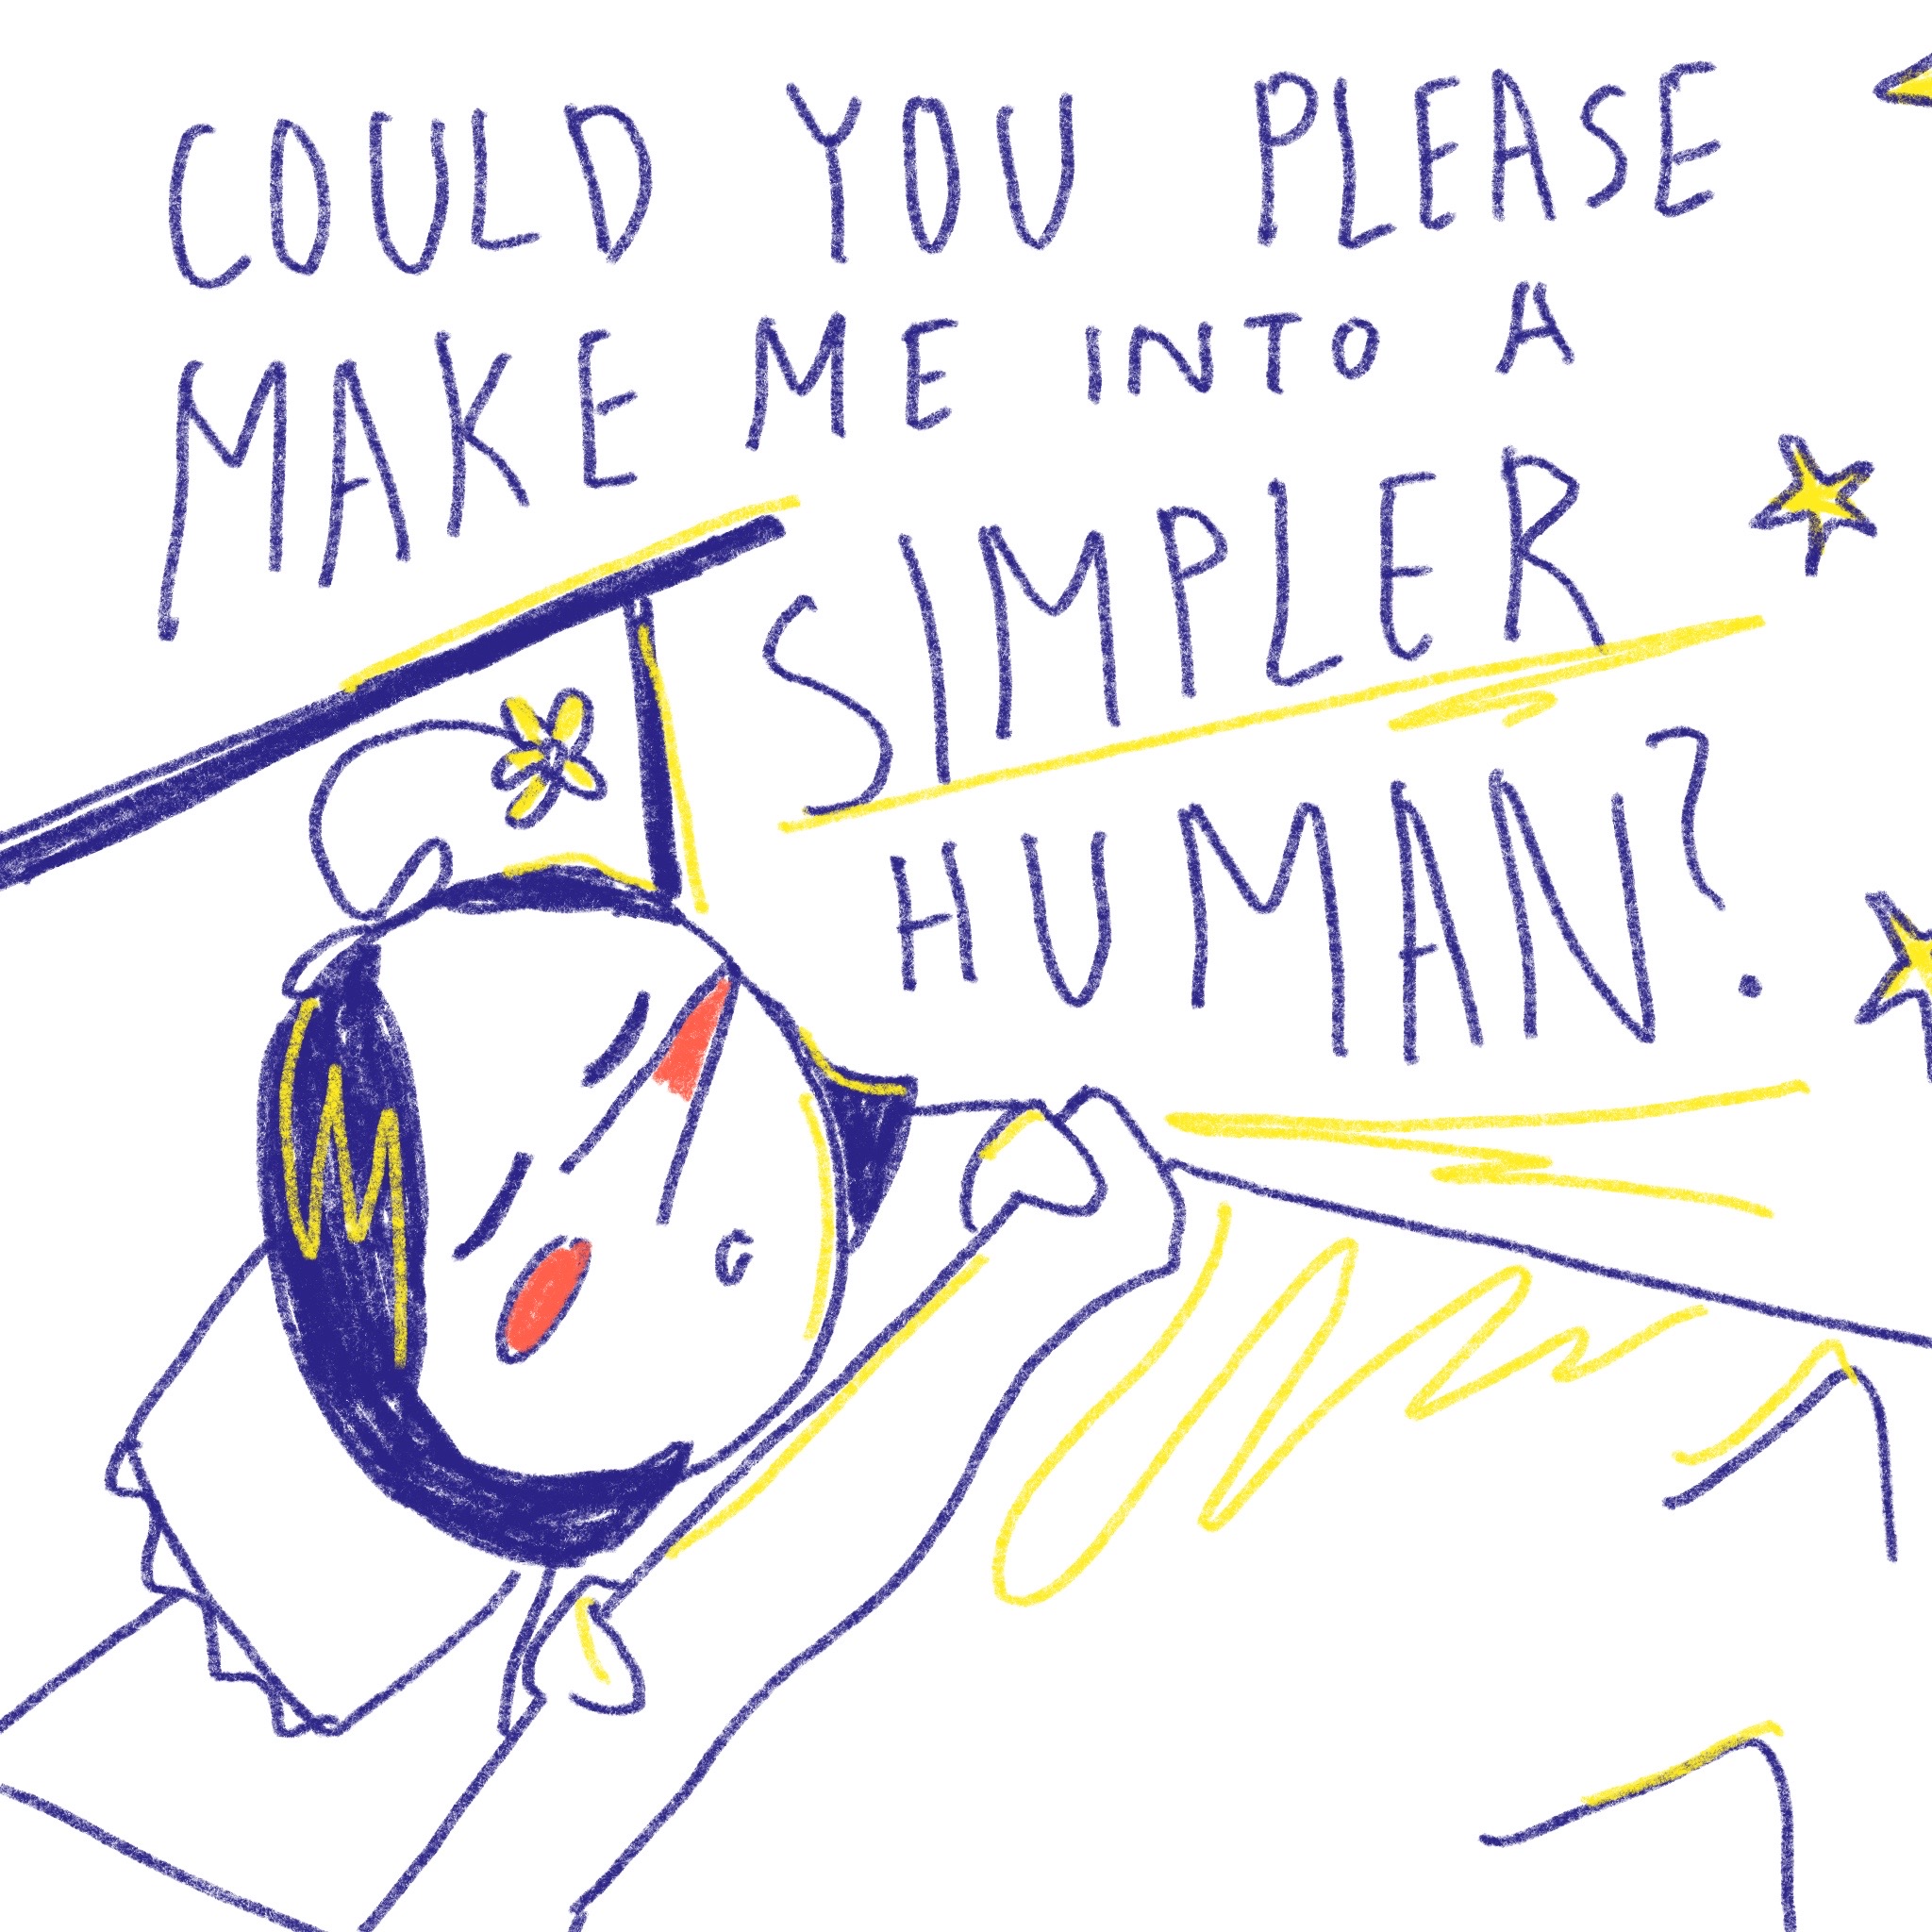 COULD YOU PLEASE
MAKE ME INTO A
SIMPLER
HUMAN?